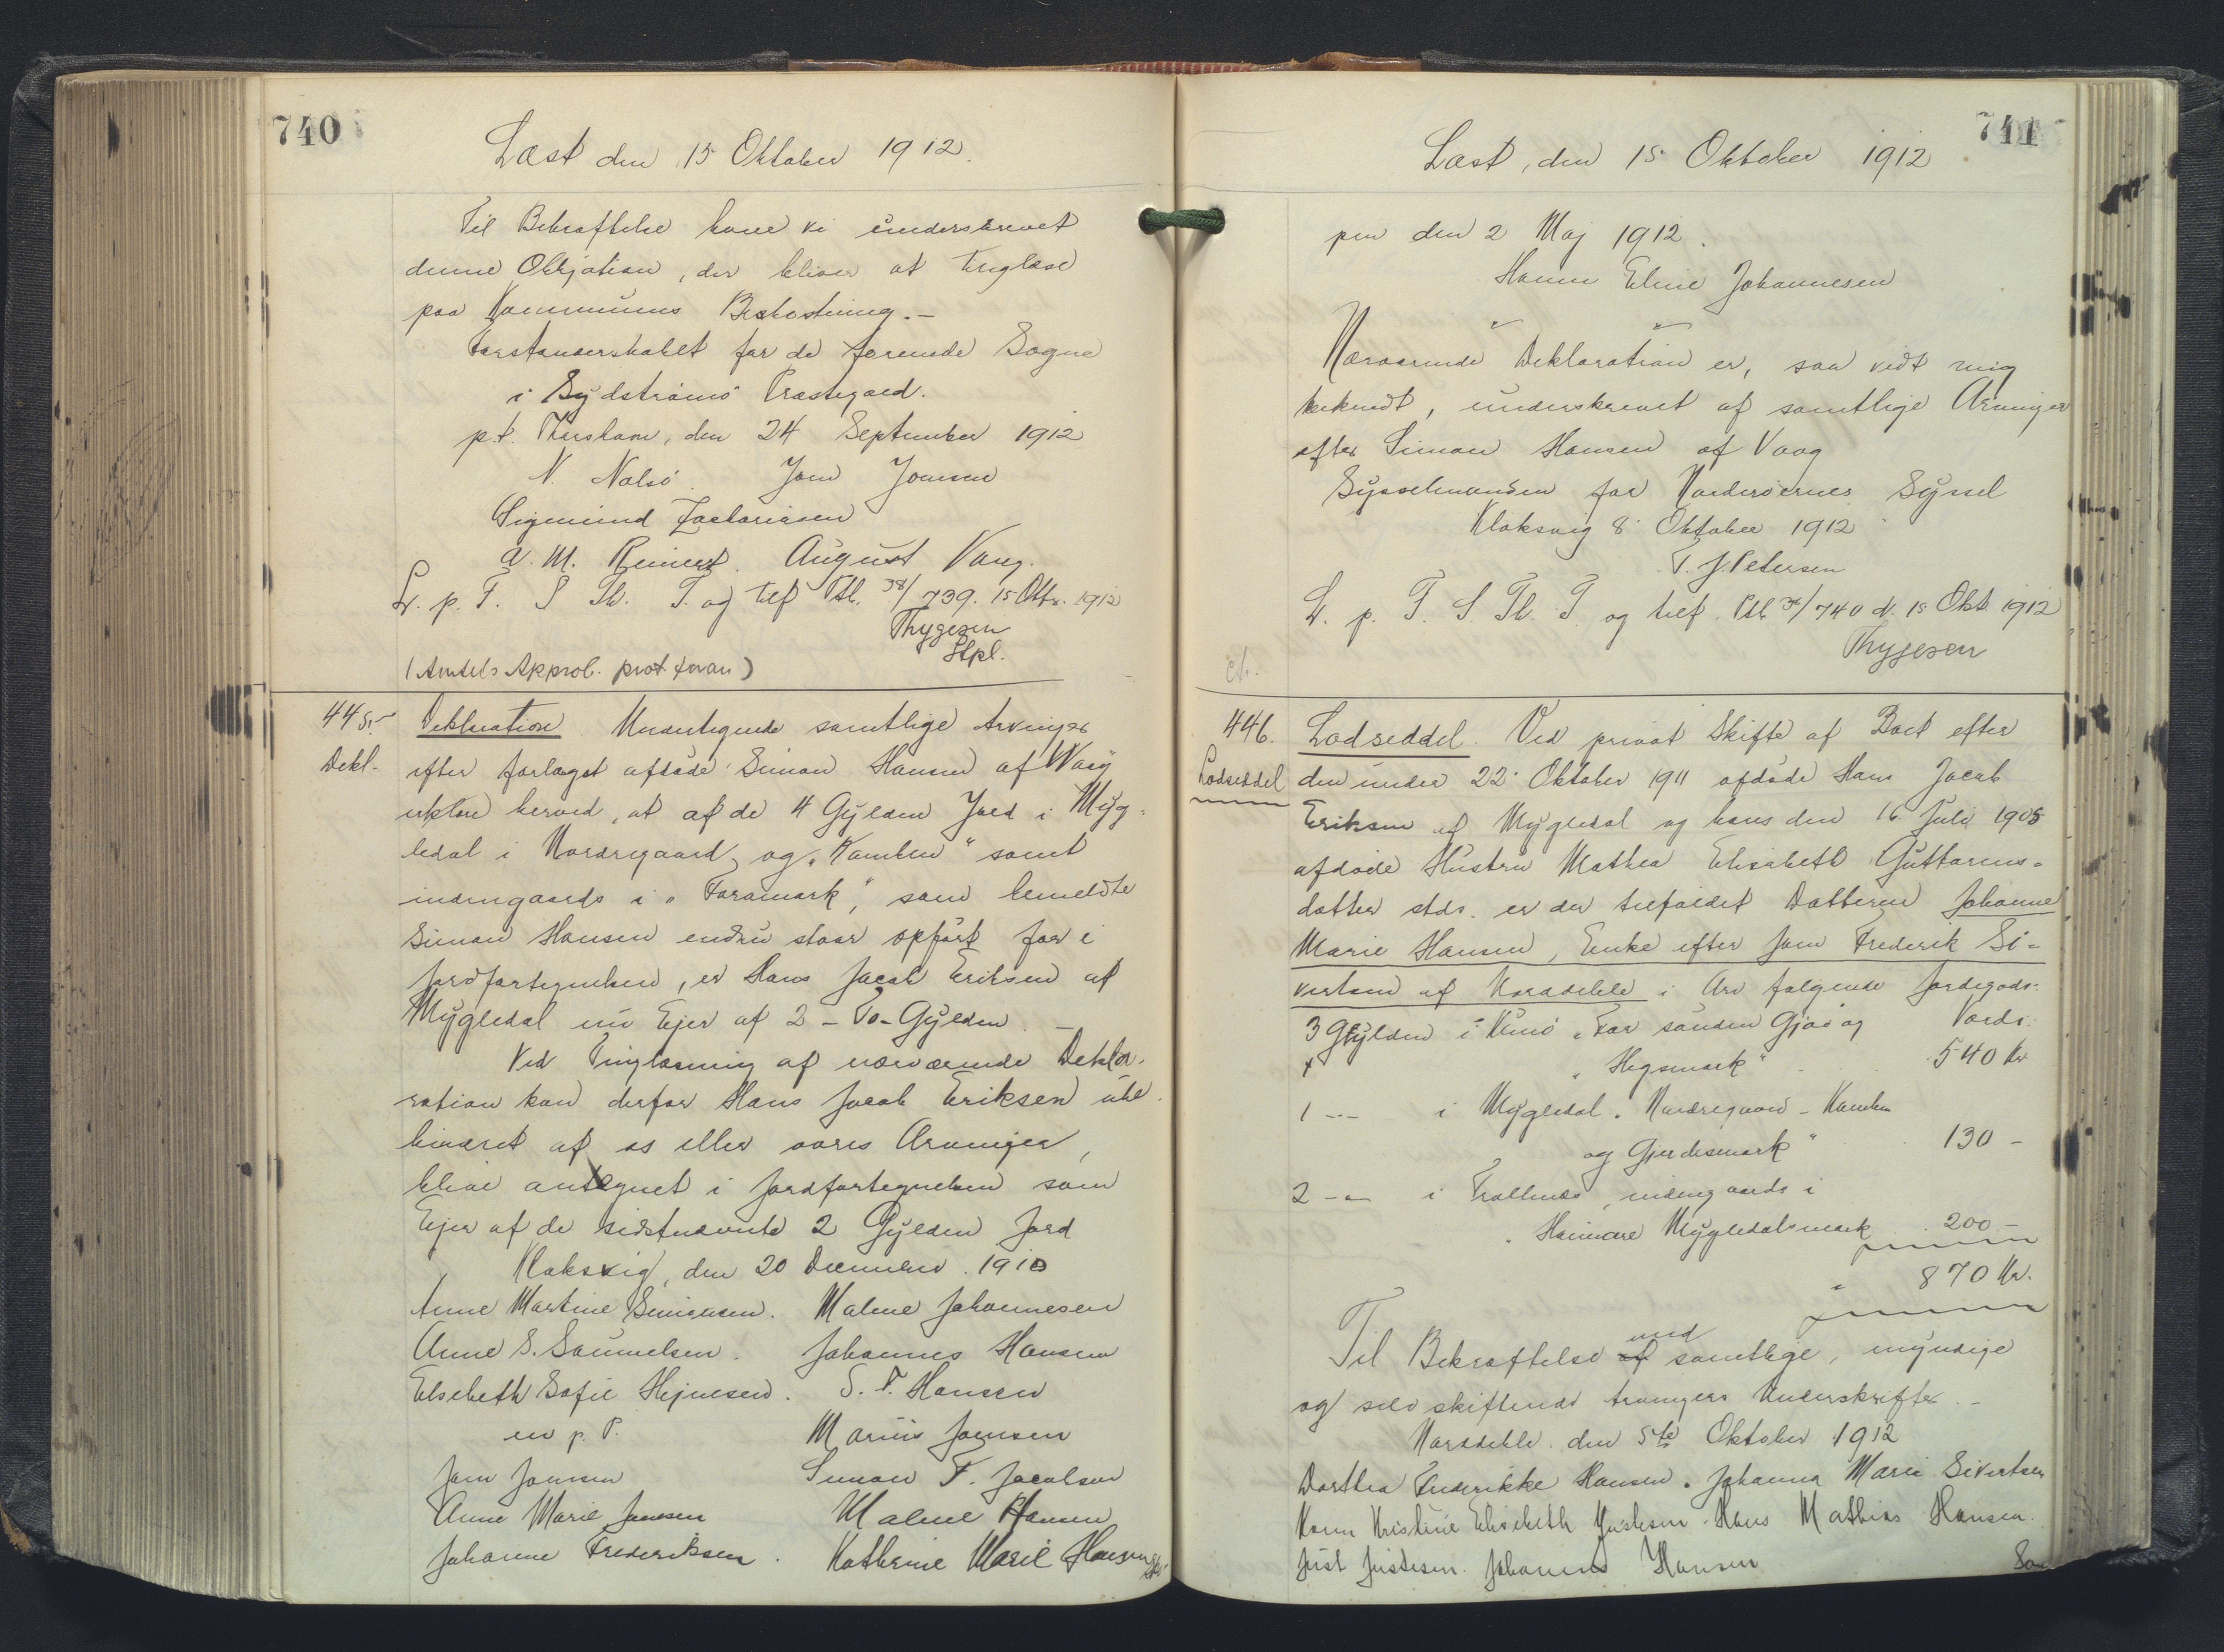 740
Læst den 15 Oktober 1912.
Til Bekræftelse have vi underskrevet
denne Obligation, der bliver at tinglæse
paa Kommunens Bekostning.-
Forstanderskabet for de forenede Sogne
i Sydstrømø Præstegæld.
p.t. Thorshavn, den 24 September 1912
N. Nolsø. Joen Joensen
Sigmund Zachariasen
A. M. Reinert. August Vang.
L. p. F. S Th. T. og tilf Ptl. 38/739. 15 Oktr. 1912
Thygesen
Stpl.
(Amtets Approb. prot foran)
445.
Dekl.
Deklaration Undertegnede samtlige Arvinger
efter forlængst afdøde Simon Hansen af Waag
erklære herved, at af de 4 Gylden Jord i Myg-
ledal i Nordregaard og "Kamben" samt
indengaards i "Foramark", som bemeldte
Simon Hansen endnu staar opført for i
Jordfortegnelsen, er Hans Jacob Eriksen af
Mygledal nu Ejer af 2 - To - Gylden. -
Ved Tinglæsning af nærværende Dekla-
ration kan derfor Hans Jacob Eriksen ube-
hindret af os eller vores Arvinger,
blive antegnet i Jordfortegnelsen som
Ejer af de sidstnævnte 2 Gylden Jord
Klaksvig, den 20 December 1910
Anne Martine Simonsen. Malene Johannesen
Anne S. Samuelsen. Johannes Hansen
Elsebeth Sofie Hejnesen. S. F. Hansen
m p. P. Marius Joensen
Joen Joensen Simon F. Jacobsen
Anne Marie Jensen Malene Hansen
Johanne Frederiksen. Kathrine Marie Hansen
741
Læst, den 15 Oktober 1912
pen den 2 Maj 1912.
Hanna Eline Johannesen
Nærværende Deklaration er, saa vidt mig
bekendt, underskrevet af samtlige Arvinger
efter Simon Hansen af Vaag
Sysselmanden for Norderøernes Syssel
Klaksvig 8 Oktober 1912
T. J. Petersen
L. p. T. S. Th. T. og tilf. Ptl 38/740 d. 15 Okt 1912
Thygesen
446.
Lodseddel
Lodseddel. Ved privat Skifte af Boet efter
den under 22 Oktober 1911 afdøde Hans Jacob
Eriksen af Mygledal og hans den 16 Juli 1905
afdøde Hustru Mathea Elisabeth Guttorms-
datter stds. er der tilfaldet Datteren Johanne
Marie Hansen, Enke efter Joen Frederik Si-
vertsen af Norddeble i Arv følgende Jordegods:
3 Gylden i Kunø "For sunden Gjov og Værdi:
"Hegsmark" 540 Kr
1 - - i Mygledal. Nordregaard - Kamben
og Gjerdesmark" 130 -
2 - - i Trøllenæs, indengaards i
Haimare Mygledalsmark 200 -
870 Kr.
Til Bekræftelse af ved samtlige, myndige
og selvskiftende Arvingers Underskrifter. -
Norddeble den 5te Oktober 1912
Dorthea Fredrikke Hansen. Johanna Maria Sivertsen
Karen Kristine Elisebeth Justesen. Hans Mathias Hansen.
Just Justesen. Johannes Hansen
Som